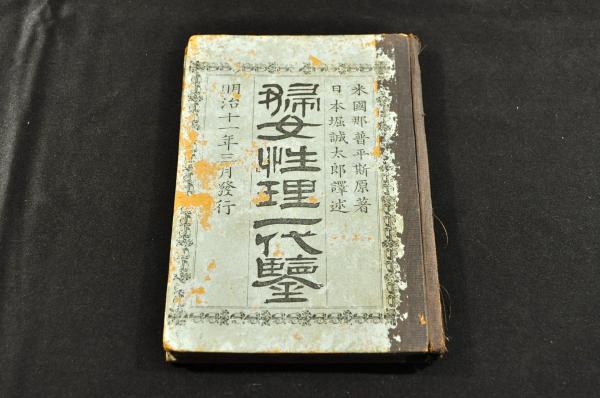 米國那普平斯原著
日本堀誠太郎譯述
婦女性理一代鑒
明治十一年三月發行